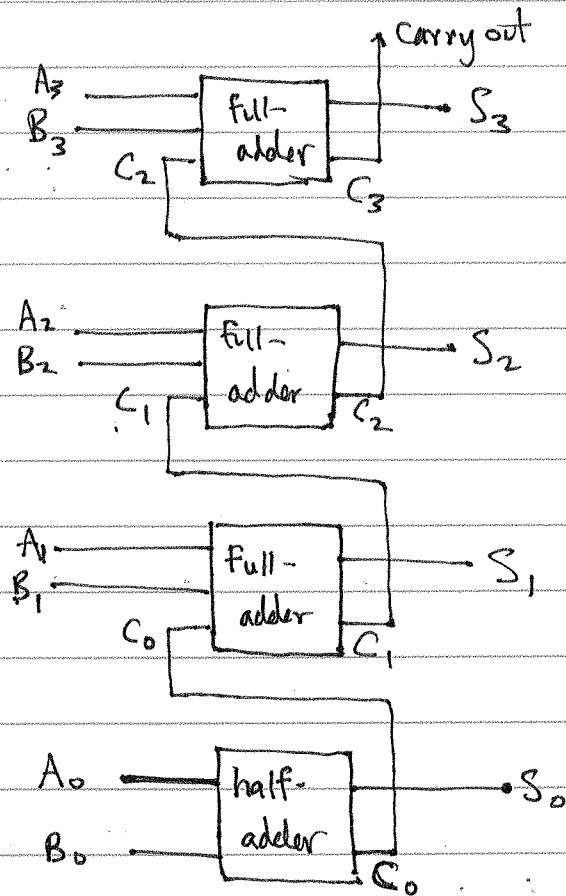 carry out
A₃
full-
adder
S₃
B₃
C₂
C₃
A₂
full-
adder
S₂
B₂
C₁
C₂
A₁
Full-
adder
S₁
B₁
C₀
C₁
A₀
half-
adder
S₀
B₀
C₀